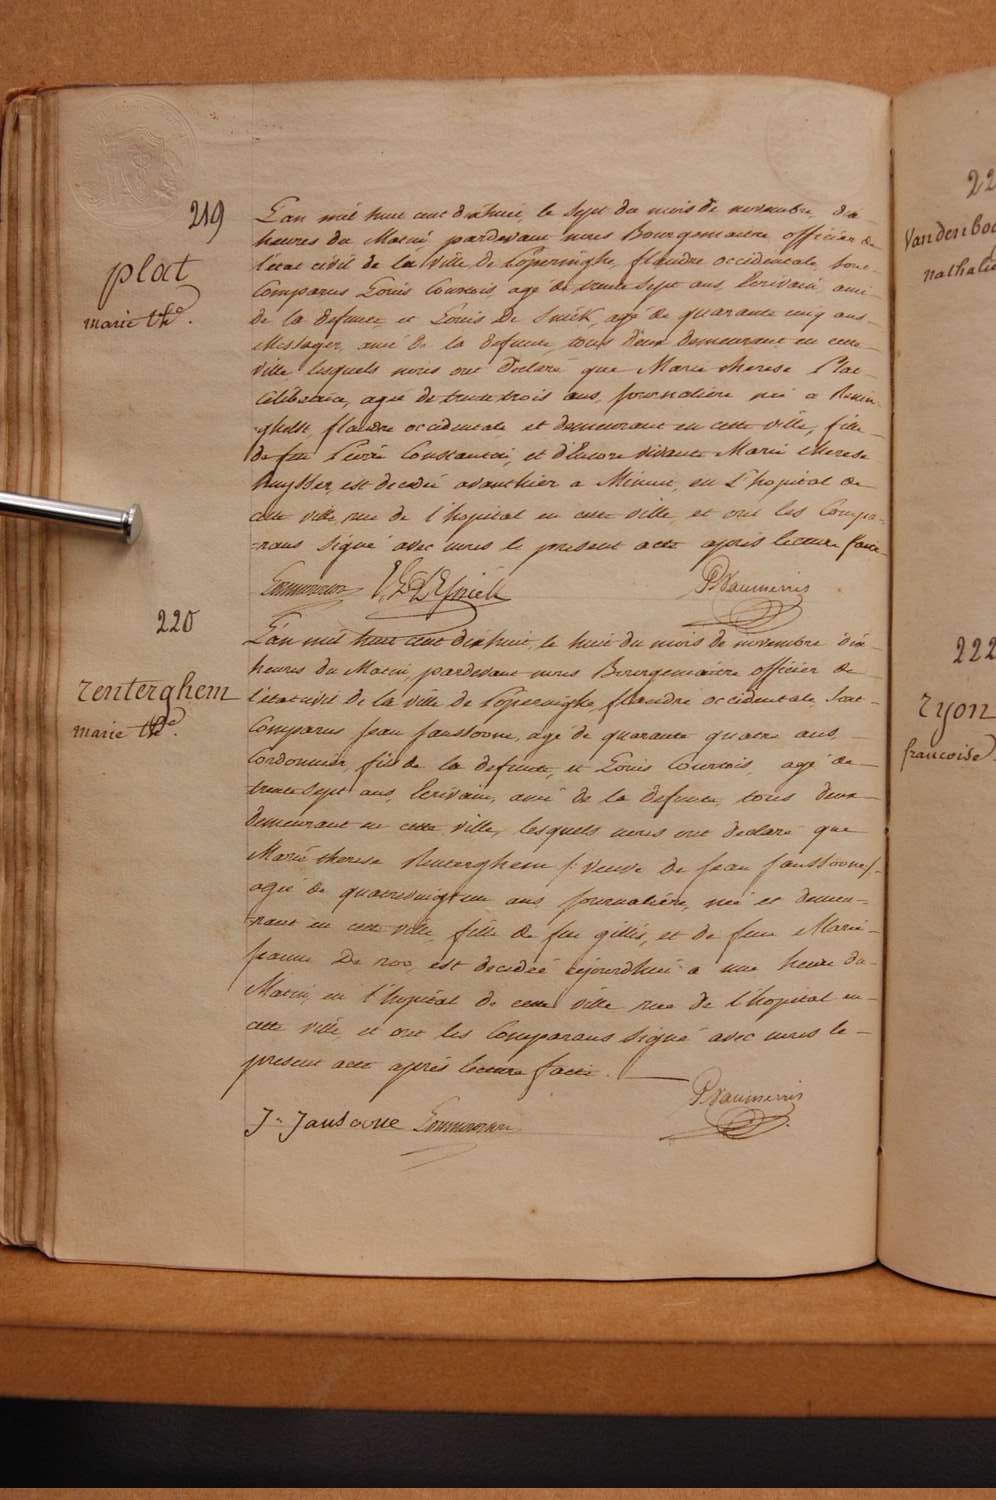 219
plat
marie the.
L'an mil huit cent dixhuit, le sept du mois de novembre, dix
heures du Matin pardevant nous Bourgemaitre officier de
l'état civil de la Ville de Poperinghe, flandre occidentale, sont
Comparus Louis Courtois, agé de trente sept ans, Ecrivain, ami
de la defunte et Louis De Smick, agé de quarante cinq ans
Messager, ami de la defunte, tous deux demeurant en cette
ville lesquels nous ont declaré que Marie therese Plat
Célibataire, agée de trente trois ans, journaliere née a Renin-
ghelst, flandre occidentale et demeurant en cette ville, fille
de feu Pierre Constantin, et d'Encore vivante Marie therese
huysser, est decedée avanthier a Minuit, en L'hopital de
cette ville, rue de l'hopital en cette ville, et ont les Compa-
-rans Signé avec nous le present acte après lecture faite
P. Vaumerris
220
renterghem
marie the.
L'an mil huit cent dixhuit, le huit du mois de novembre dix
heures du Matin, pardevant nous Bourgemaitre officier de
l'état civil de la ville de Poperinghe, flandre occidentale, Sont
Comparus Jean Janssoone, agé de quarante quatre ans,
Cordonnier, fils de la defunte, et Louis Courtois, agé de
trente sept ans, Ecrivain, ami de la defunte, tous deux
demeurant en cette ville, lesquels nous ont declaré que
Marie therese Renterghem /: Veuve de Jean Janssoone /:
agée de quatrevingt un ans journaliére, née et demeu-
-rant en cette ville, fille de feu gillis, et de feue Marie
jeanne De roo, est decedée aujourdhui a une heure du
Matin, en l'hopital de cette ville rue de l'hopital en
cette ville, et ont les Comparans Signé avec nous le
present acte après lecture faite.
P. Vaumerris
J. Jansoone
22
Vandenbo
nathalie
222
ryon
francoise